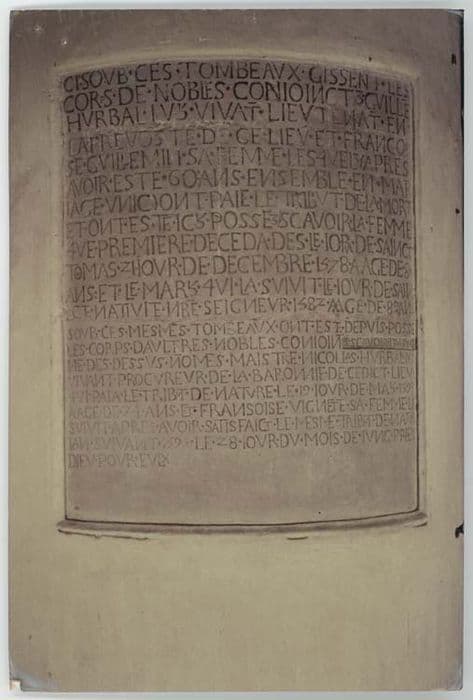 CI·SOVB·CES·TOMBEAVX·GISSENT·LES
CORS·DE·NOBLES·CONIOINCTS·GVILLE
HVRBAL·VIVAT·LIEVTENAT·EN
LA·PREVOSTE·DE·CE·LIEV·ET·FRANCO
SE·GVILLEMIN·SA·FEMME·LES·APRES
AVOIR·ESTE·60·ANS·ENSEMBLE·EN·MAI
AGE·VNIC·ONT·PAIE·LE·TRIBVT·DE·LA·MORT
ET·ONT·ESTE·ICI·SCAVOIR·LA·FEMME
4VE·PREMIERE·DECEDA·DES·LE·IOR·DE·SAINC
TOMAS·21·IOVR·DE·DECEMBRE·1578·AAGE·DE·8
ANS·ET·LE·MARI·4VI·LA·SVIVIT·LE·IOVR·DE·SAI
NATIVITE·NRE·SEIGNEVR·1582·AAGE·DE
SOVB·CES·MESMES·TOMBEAVX·ONT·EST·DEPVIS·POSE
LES·CORPS·DAVLTRES·NOBLES·CONIOIN
DES·DESSVS·NOMES·MAISTRE·NICOLAS·HVRBAL
VIVANT·PROCVREVR·DE·LA·BARONNIE·DE·CEDICT·LIEV
PAIA·LE·TRIBT·DE·NATVRE·LE·19·IOVR·DE·MAI
AAGE·DE·ANS·ET·FRANSOISE·VIGNETE·SA·FEMME
SVIVIT·APRES·AVOIR·SATISFAICT·LE·MESME·TRIBT·DE
LAN·SVIVANT·LE·28·IOVR·DV·MOIS·DE·IVNG·PRIE
DIEV·POVR·EVLX